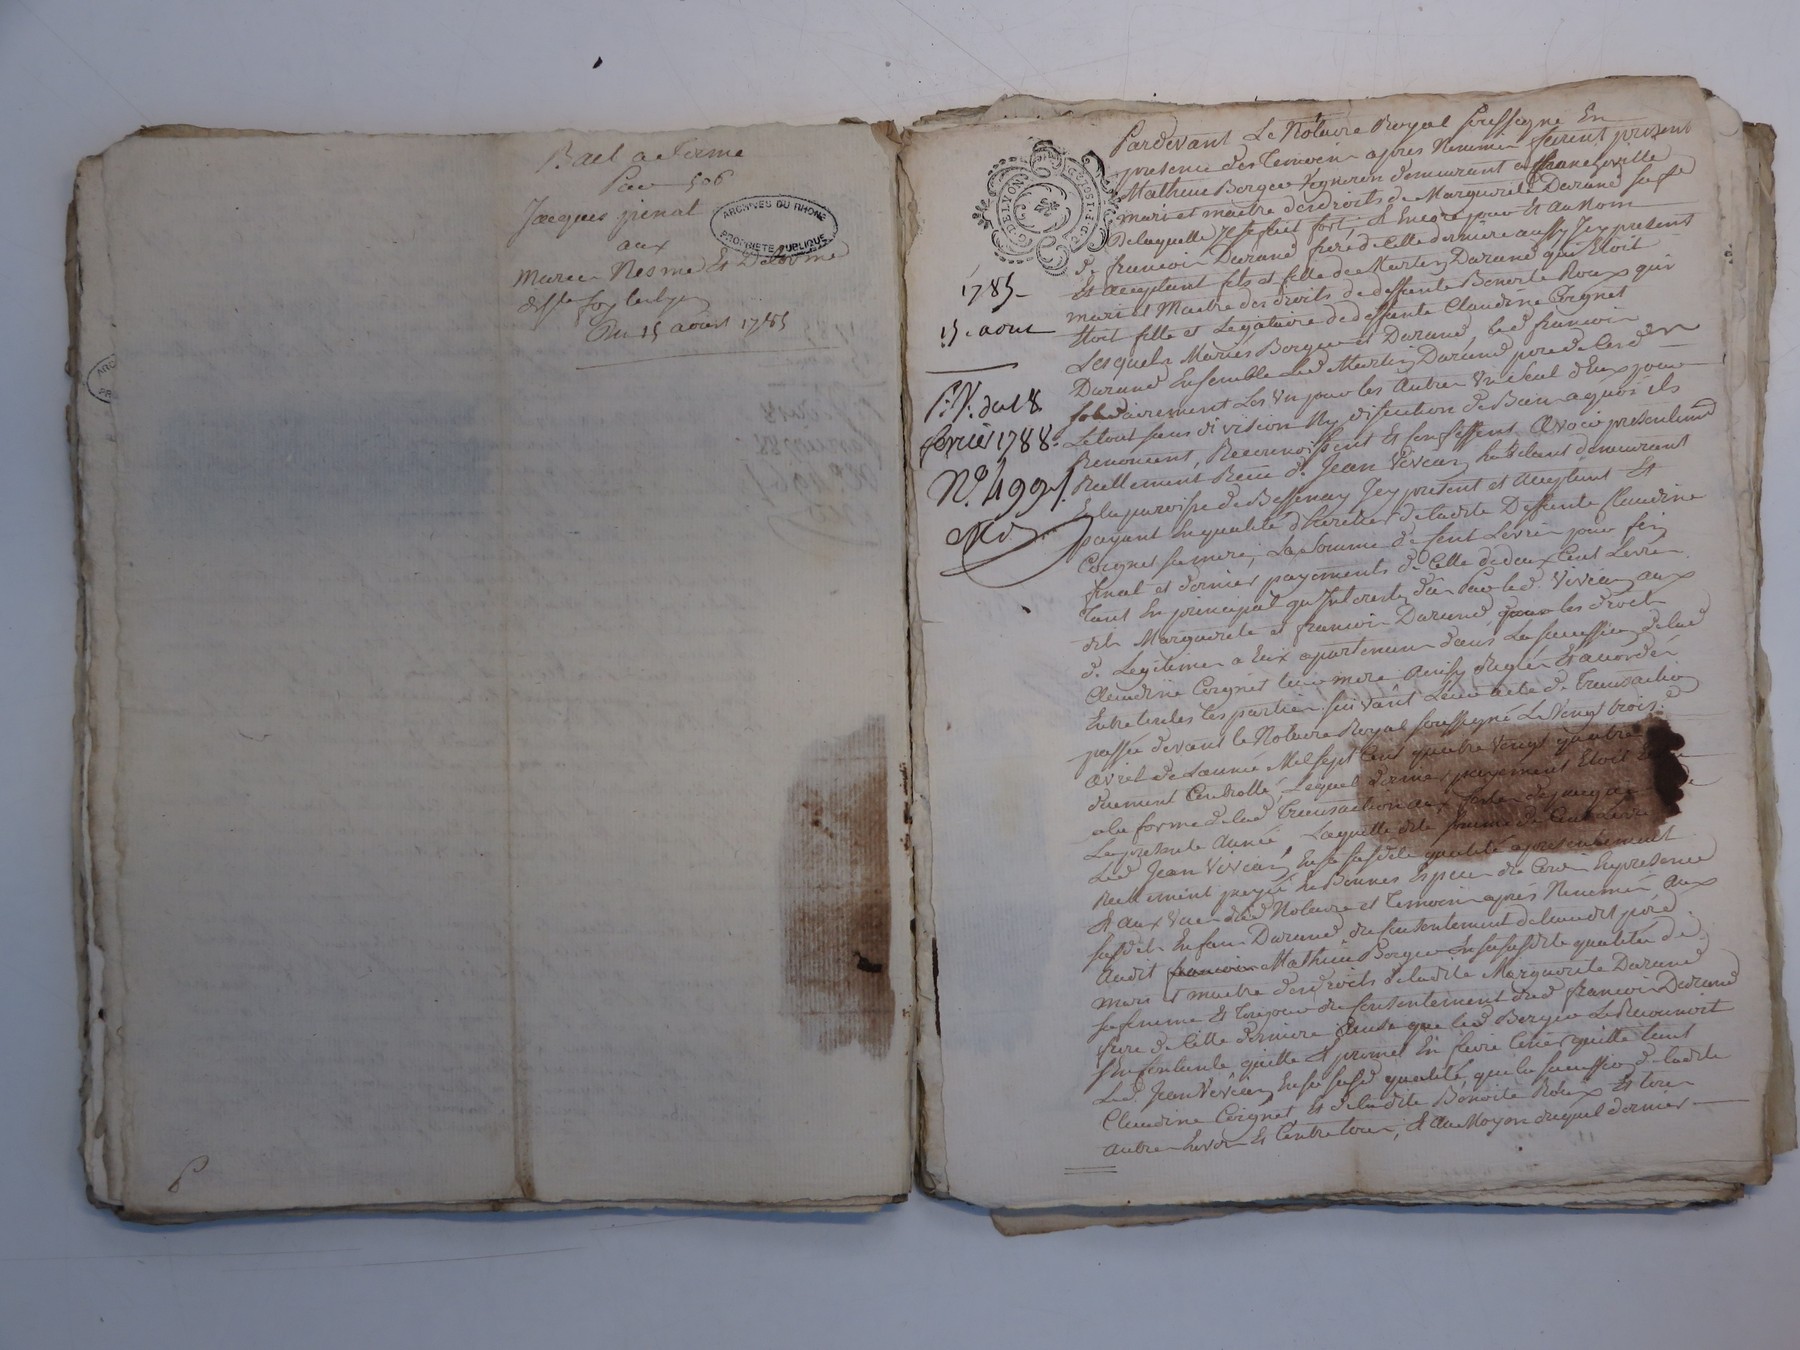 Bail a ferme
Jacques pinat
aux
ARCHIVES DU RHONE
PROPRIETE PUBLIQUE
Maries Nesme Et Delorme
Du 15 aoust 1785
1785
15. aout
P. V. du 18
fevrier 1788.
N.º 499
Pardevant Le Notaire Royal soussigné En
presence des temoins apres Nommés furent present
Mathieu Berger Vigneron demeurant a francheville
mari et maitre des droits de Marguerite Durand sa fe
De laquelle Il se fait fort, Et Encore pour Et au Nom
de francois Durand frere de cette derniere aussy Icy present
Et acceptant fils et fille de Martin Durand qui Etoit
mari et Maitre des droits de deffunte Benoite Roux qui
Etoit fille et Legataire de deffunte Claudine Coignet
Lesquels Mariés Berger et Durand, led francois
Durand Ensemble led Martin Durand pere de
solidairement Les Un pour les Autres Un seul d'Eux pour
Le tout sans division Ny discution de Bien aquoi ils
Renoncent, Reconnoissent Et Confessent Avoir presentement
Reellement Receu de Jean Vivian habitant demeurant
En la paroisse de Bessenay Icy present et acceptant Et
payant En qualité d'heritier de ladite Deffunte Claudine
Coignet sa mere, La Somme de Cent Livres pour fin
final et dernier payements de Celle de deux Cent Livres
Tant En principal qu'Interests dûs Par led Vivian aux
dits Marguerite et francois Durand pour les droits
de Legitimes a Eux apartenans dans La succession de lad
Claudine Coignet leur mere Ainsy Reglés Et accordés
Entre toutes les parties suivant Leur acte de Transaction
passée devant le Notaire Royal soussigné Le Vingt trois
avril de L'année Mil sept Cent quatre Vingt quatre
duement Controllé, Lequel dernier payement Etoit
a la forme de lad Transaction aux
La presente année Laquelle dite somme de Cent Livres
Led Jean Vivian En sa susdite qualité a presentement
Reellement payée En Bonnes Especes de Cours En presence
Et aux Vues dud Notaire et temoins après Nommés Aux
susdits Enfans Durand du Consentement de leurdit pere
Audit francois Mathieu Berger En sa susdite qualité de
mari et maitre des droits de ladite Marguerite Durand
sa femme Et toujours du Consentement dud francois Durand
frere de Cette derniere Ainsi que led Berger Le Reconnoit
s'En Contente quitte Et promet En faire tenir quitte tant
Led Jean Vivian En sa susd qualité que la succession de ladite
Claudine Coignet Et de ladite Benoite Roux Et tous
autres Envers Et Contre tous, Et Au Moyen duquel dernier